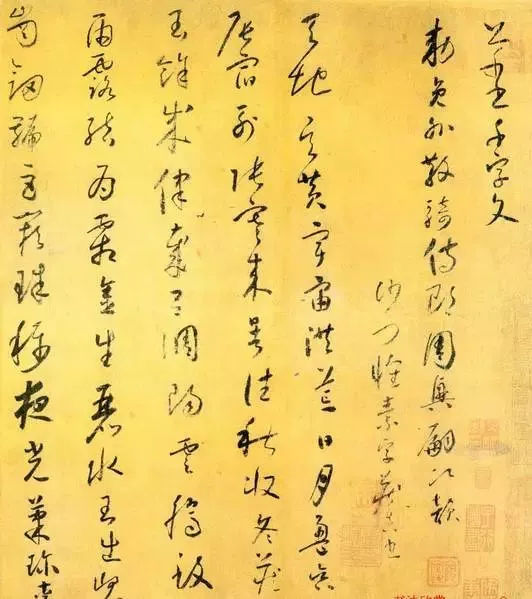 千字文
勅員外散騎侍郎周興嗣次韻
沙門懷素字藏真
天地玄黃宇宙洪荒日月盈昃
辰宿列張寒來暑往秋收冬藏
閏餘成律歲呂調陽雲騰致
雨露結為霜金生麗水玉出崐
崗劍號巨闕珠稱夜光菓珍李